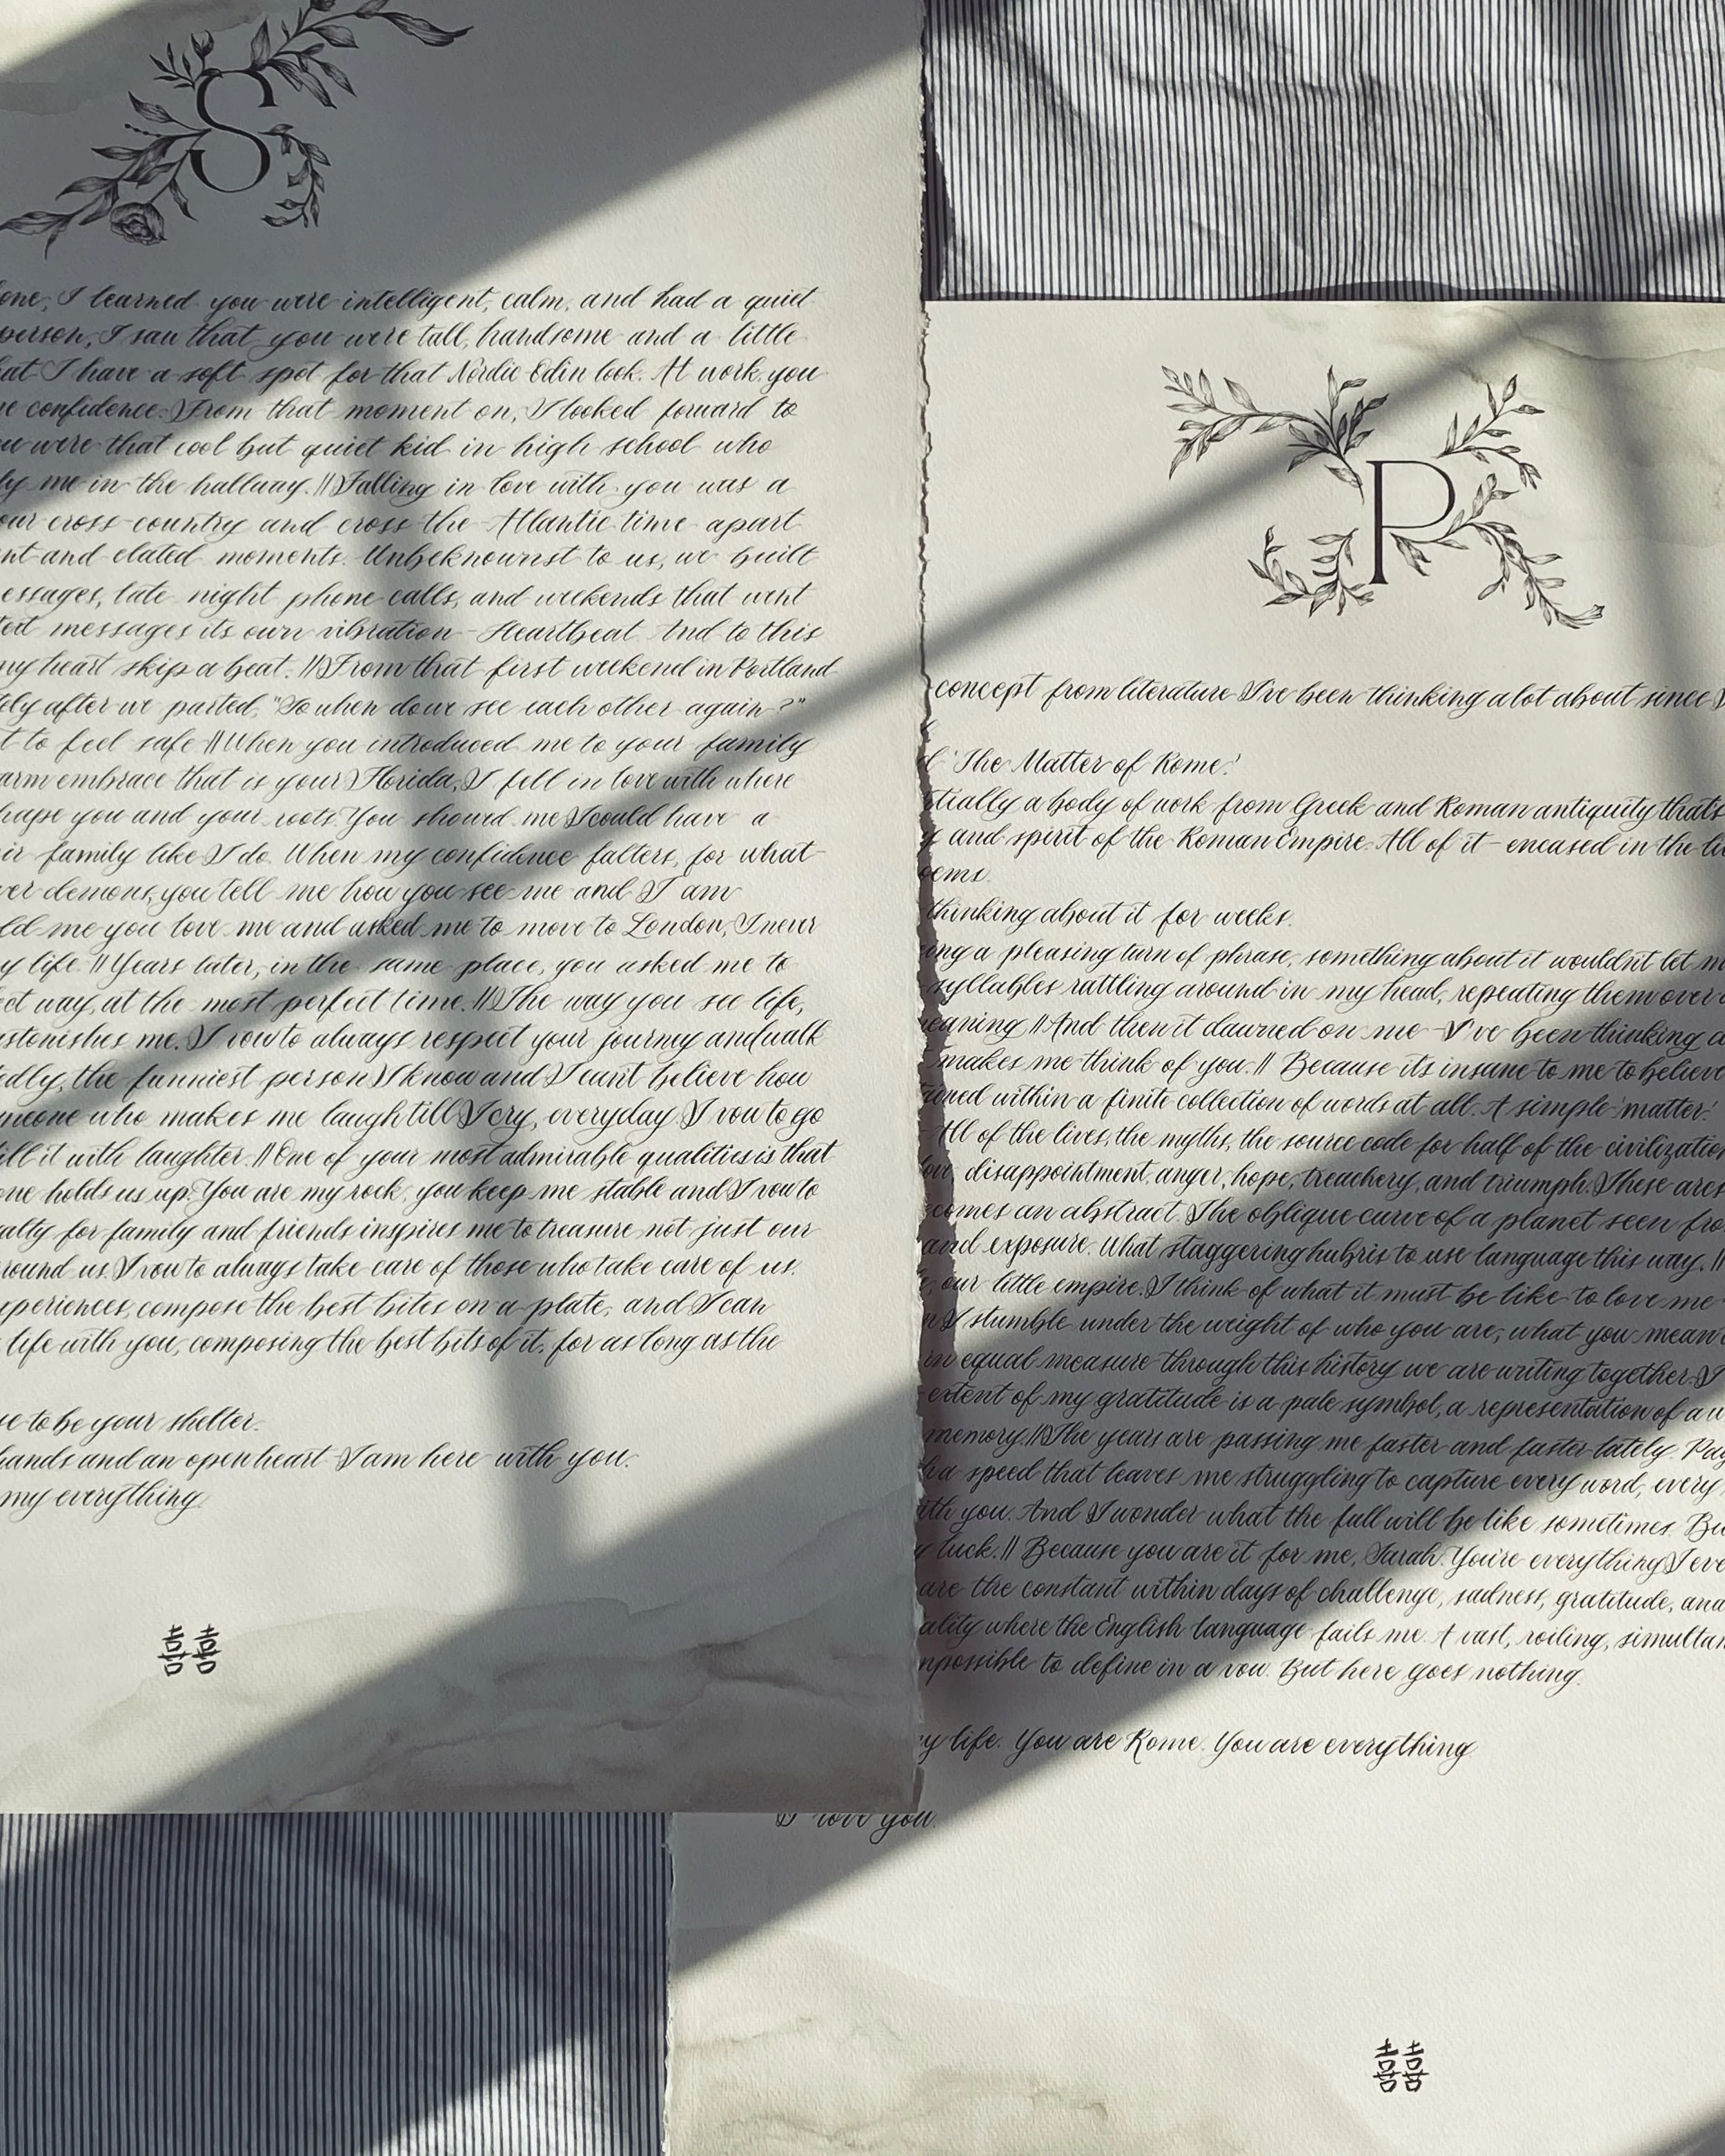 S
one, I learned you were intelligent, calm, and had a quiet
person, I saw that you were tall, handsome and a little
hat I have a soft spot for that Nordic Odin look. At work, you
confidence. From that moment on, I looked forward to
you were that cool but quiet kid in high school who
me in the hallway. || Falling in love with you was a
our cross-country and cross the Atlantic time apart
and elated moments. Unbeknownst to us, we built
essages, late night phone calls, and weekends that went
text messages its own vibration - Heartbeat. And to this
my heart skip a beat. || From that first weekend in Portland
after we parted, "So when do we see each other again?"
to feel safe || When you introduced me to your family
arm embrace that is your Florida, I fell in love with where
hape you and your roots. You showed me I could have a
eir family like I do. When my confidence falters, for what-
ver demons, you tell me how you see me and I am
ld me you love me and asked me to move to London, I never
my life. || Years later, in the same place, you asked me to
ect way, at the most perfect time. || The way you see life,
astonishes me. I vow to always respect your journey and walk
edly, the funniest person I know and I can't believe how
meone who makes me laugh till I cry, everyday. I vow to go
ill it with laughter. || One of your most admirable qualities is that
one holds us up. You are my rock, you keep me stable and I vow to
alty for family and friends inspires me to treasure not just our
round us. I vow to always take care of those who take care of us.
xperiences, compose the best bites on a plate, and I can
life with you, composing the best bits of it, for as long as the
se to be your shelter.
hands and an open heart I am here with you.
my everything.
囍
R
concept from literature I've been thinking a lot about since I
'The Matter of Rome.'
tially a body of work from Greek and Roman antiquity that's
and spirit of the Roman Empire. All of it - encased in the li
oems.
thinking about it for weeks.
ong a pleasing turn of phrase, something about it wouldn't let m
syllables rattling around in my head, repeating them over a
eaning || And then it dawned on me - I've been thinking a
makes me think of you. || Because its insane to me to believe
ioned within a finite collection of words at all. A simple 'matter.'
All of the lives, the myths, the source code for half of the civilization
love, disappointment, anger, hope, treachery, and triumph. These are
comes an abstract. The oblique curve of a planet seen fro
and exposure. What staggering hubris to use language this way. ||
our little empire. I think of what it must be like to love me
I stumble under the weight of who you are, what you mean
in equal measure through this history we are writing together. I
extent of my gratitude is a pale symbol, a representation of a w
memory. || The years are passing me faster and faster lately. Pag
a speed that leaves me struggling to capture every word, every
ith you. And I wonder what the fall will be like sometimes. Bu
luck. || Because you are it for me, Sarah. You're everything I eve
are the constant within days of challenge, sadness, gratitude, and
ality where the English language fails me. A vast, roiling, simultan
mpossible to define in a vow. But here goes nothing.
my life. You are Rome. You are everything
I love you.
囍